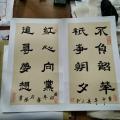 不負韶華
祇爭朝夕
紅心向黨
追尋夢想